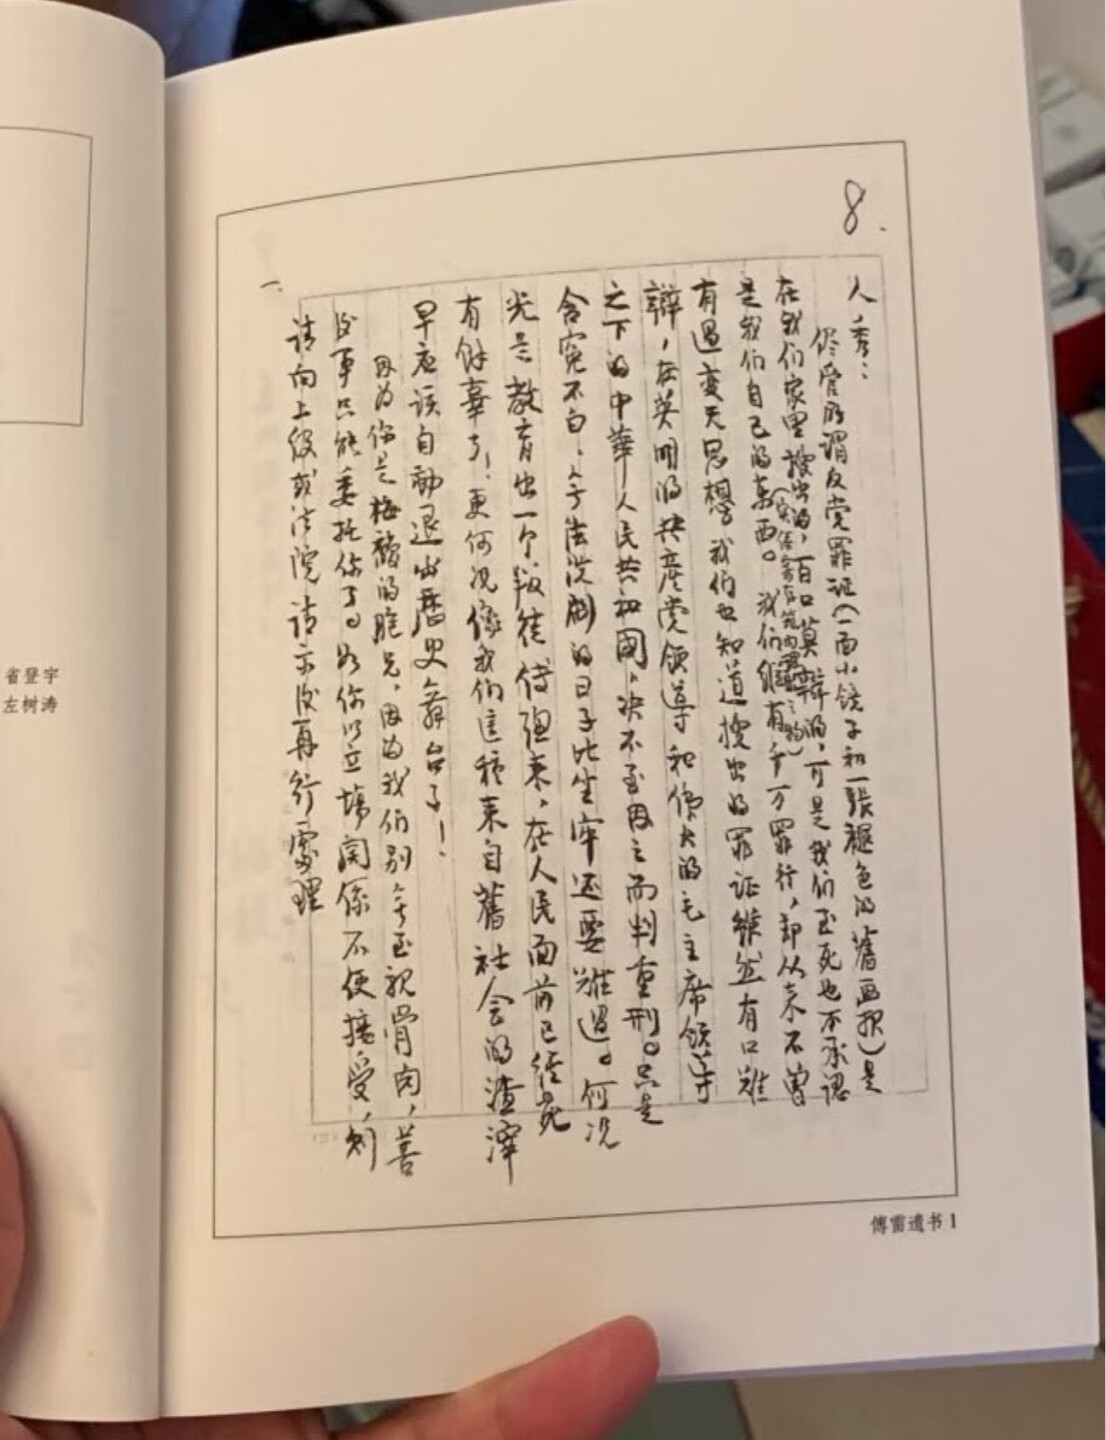 8.
人秀：
儘管所谓反党罪证（一面小镜子和一張褪色的舊画报）是
在我们家里搜出的，百口莫辯的，可是我们至死也不承認
是我们自己的东西。我们縱有千万罪行，却从来不曾
（实系寄存箱内理出之物）
有过变天思想。我们也知道搜出的罪证雖然有口难
辯，在英明的共産党领導和偉大的毛主席领導
之下的中華人民共和國，决不至因之而判重刑。只是
含寃不白，无法洗刷的日子比坐牢还要难过。何况
光是教育出一个叛徒傅聰来，在人民面前已经死
有餘辜了！更何况像我们這種来自舊社会的渣滓
早应该自動退出歷史舞台了！
因为你是梅馥的胞兄，因为我们别无至親骨肉，善
後事只能委托你了。如你以立場関係不便接受，則
请向上级或法院请示後再行處理
一.
傅雷遗书 1
省登宇
左树涛